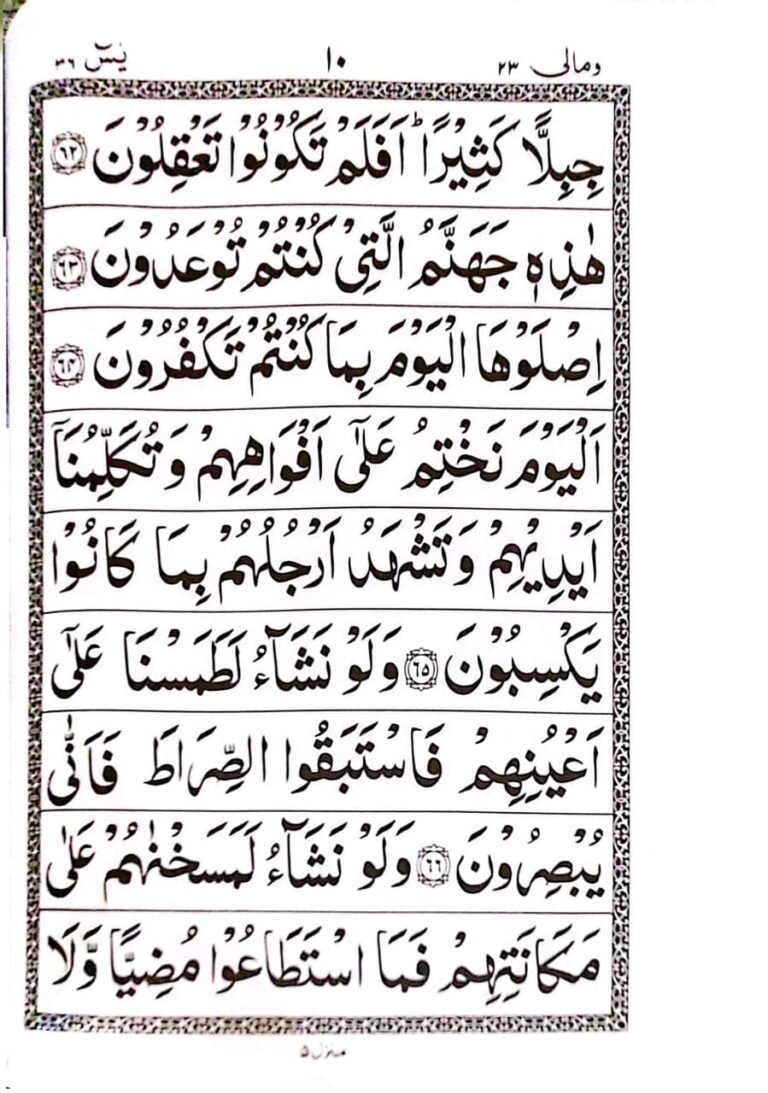 ومالی ٢٣ ١٠ یٰسٓ ٣٦
جِبِلًّا كَثِيْرًا ؕ اَفَلَمْ تَكُوْنُوْا تَعْقِلُوْنَ ﴿٦٢﴾
هٰذِهٖ جَهَنَّمُ الَّتِيْ كُنْتُمْ تُوْعَدُوْنَ ﴿٦٣﴾
اِصْلَوْهَا الْيَوْمَ بِمَا كُنْتُمْ تَكْفُرُوْنَ ﴿٦٤﴾
اَلْيَوْمَ نَخْتِمُ عَلٰٓى اَفْوَاهِهِمْ وَتُكَلِّمُنَآ
اَيْدِيْهِمْ وَتَشْهَدُ اَرْجُلُهُمْ بِمَا كَانُوْا
يَكْسِبُوْنَ ﴿٦٥﴾ وَلَوْ نَشَآءُ لَطَمَسْنَا عَلٰٓى
اَعْيُنِهِمْ فَاسْتَبَقُوا الصِّرَاطَ فَاَنّٰى
يُبْصِرُوْنَ ﴿٦٦﴾ وَلَوْ نَشَآءُ لَمَسَخْنٰهُمْ عَلٰى
مَكَانَتِهِمْ فَمَا اسْتَطَاعُوْا مُضِيًّا وَّلَا
منزل ۵